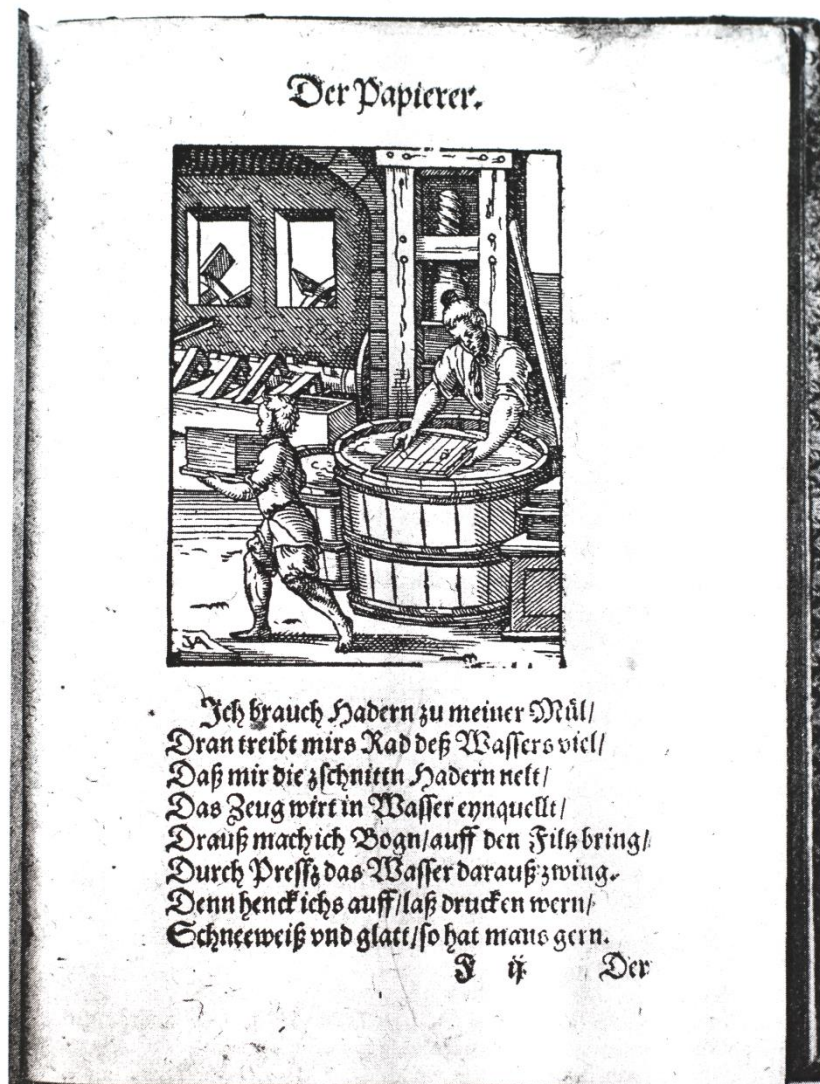 Der Papierer.
JA
Ich brauch Hadern zu meiner Mül/
Dran treibt mirs Rad deß Wassers viel/
Daß mir die zschnittn Hadern nelt/
Das Zeug wirt in Wasser eynquellt/
Drauß mach ich Bogn/auff den Filtz bring/
Durch Preß das Wasser darauß zwing.
Denn henck ichs auff/laß drucken wern/
Schneeweiß vnd glatt/so hat mans gern.
F ij Der